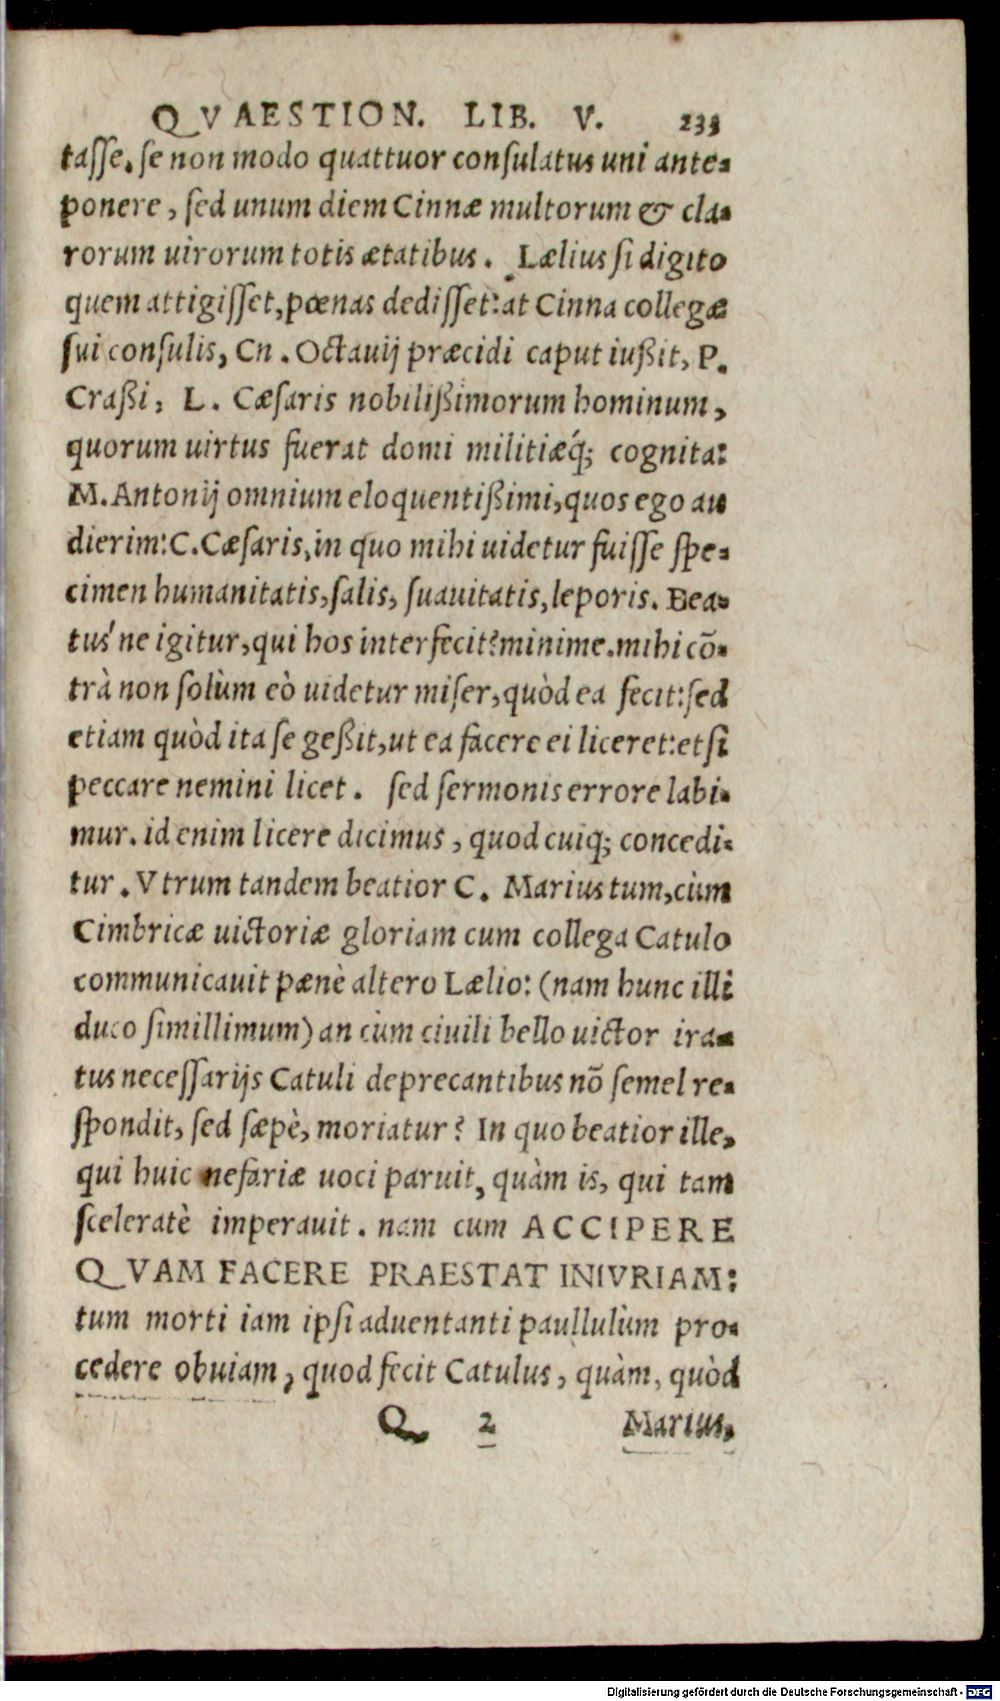 QVAESTION. LIB. V. 233
tasse. se non modo quattuor consulatus uni ante-
ponere, sed unum diem Cinnæ multorum & cla-
rorum uirorum totis ætatibus. Lælius si digito
quem attigisset, pœnas dedisset: at Cinna collegæ
sui consulis, Cn. Octauij præcidi caput iußit, P.
Craßi, L. Cæsaris nobilißimorum hominum,
quorum uirtus fuerat domi militiæq́; cognita:
M. Antonij omnium eloquentißimi, quos ego au
dierim: C. Cæsaris, in quo mihi uidetur fuisse spe-
cimen humanitatis, salis, suauitatis, leporis. Bea-
tus'ne igitur, qui hos interfecit? minime. mihi cō-
trà non solùm eò uidetur miser, quòd ea fecit: sed
etiam quòd ita se geßit, ut ea facere ei liceret: etsi
peccare nemini licet. sed sermonis errore labi-
mur. id enim licere dicimus, quod cuiq; concedi-
tur. Vtrum tandem beatior C. Marius tum, cùm
Cimbricæ uictoriæ gloriam cum collega Catulo
communicauit pænè altero Lælio: (nam hunc illi
duco simillimum) an cùm ciuili bello uictor ira-
tus necessarijs Catuli deprecantibus nō semel re-
spondit, sed sæpè, moriatur? In quo beatior ille,
qui huic nefariæ uoci paruit, quàm is, qui tam
sceleratè imperauit. nam cum ACCIPERE
QVAM FACERE PRAESTAT INIVRIAM:
tum morti iam ipsi aduentanti paullulùm pro-
cedere obuiam, quod fecit Catulus, quàm, quòd
Q 2 Marius,
Digitalisierung gefördert durch die Deutsche Forschungsgemeinschaft - DFG